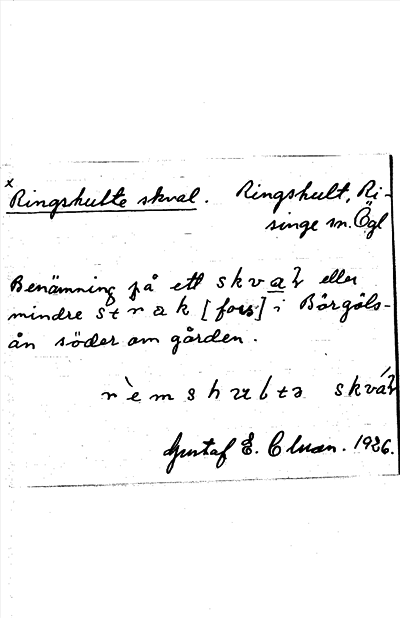 x Ringshulte skval. Ringshult, Ri-
singe sn. Ögl
Benämning på ett skval eller
mindre strak [fors] i Börgöls-
ån söder om gården.
skvá
Gustaf E. 1926.